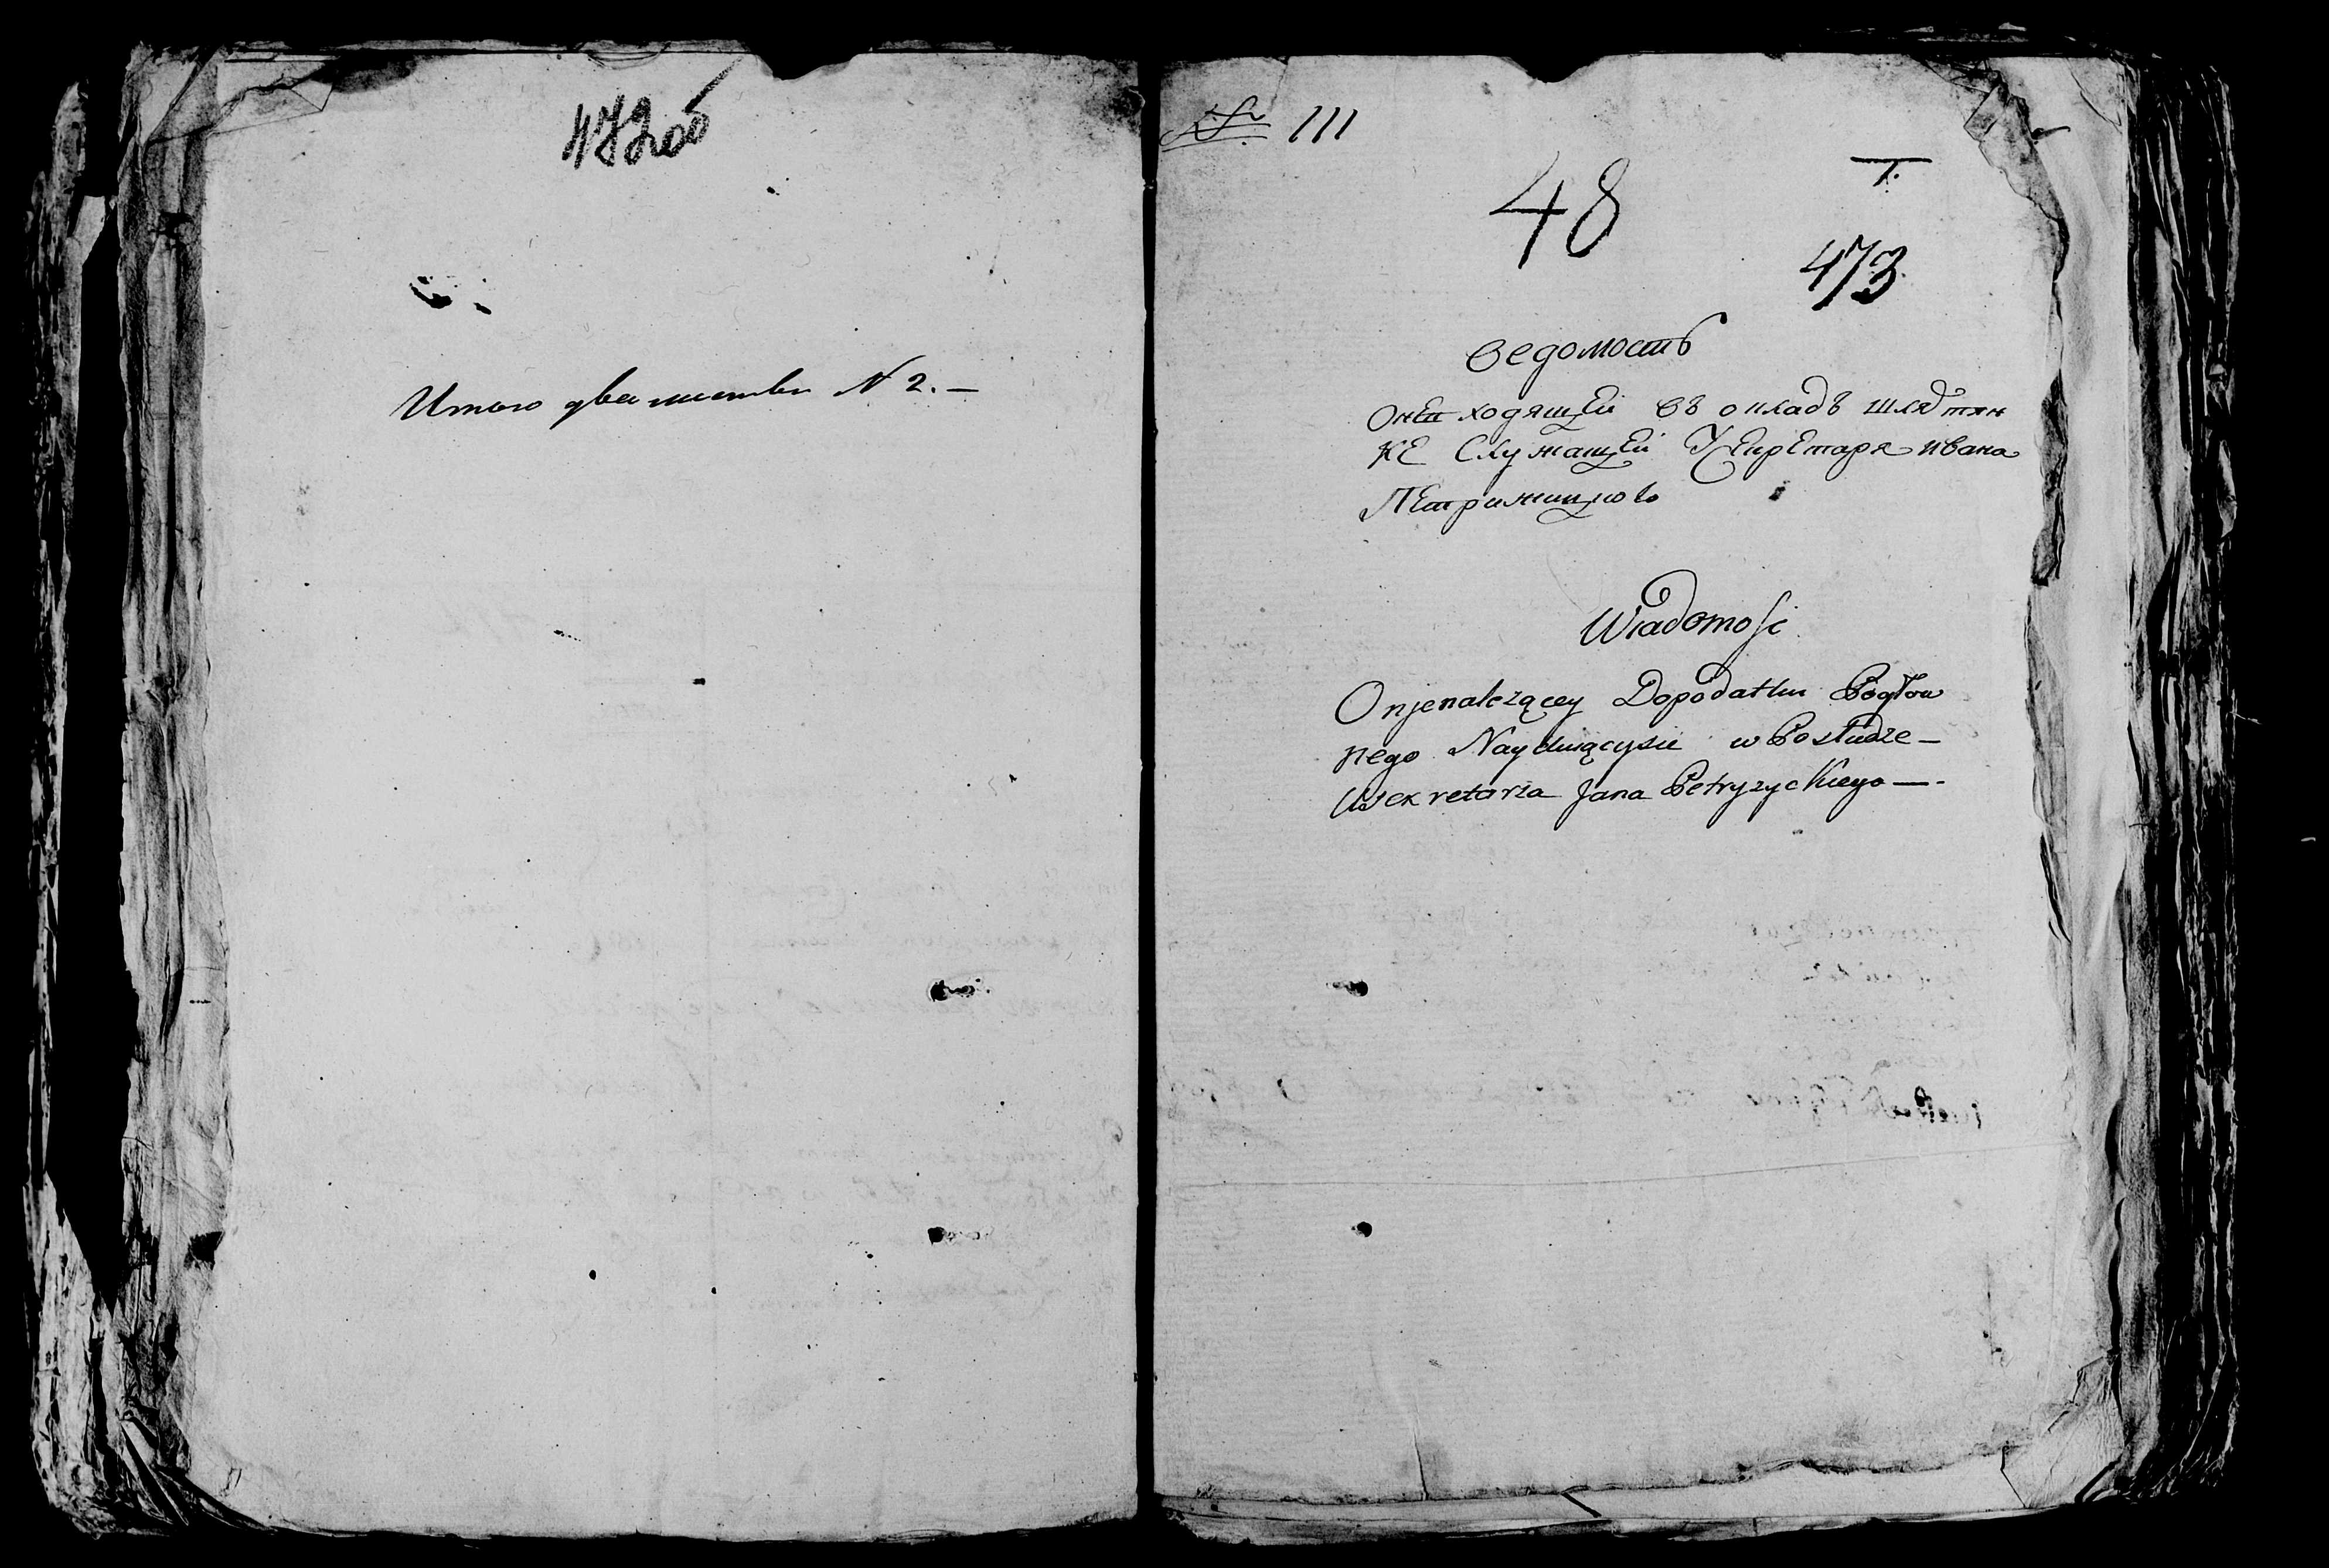 472 об
Итого два листа N 2. —
№ 111
48
1.
473
ведомость
Онеи ходящеи въ окладъ шляхтян
ке Служащеи Уекретаря ивана
Петрижицкого
Wiadomość
O njenależącey Dopodatku Pogłow
nego Nayduiącysie w Posłudze —
Usekretarza Jana Petryżyckiego —